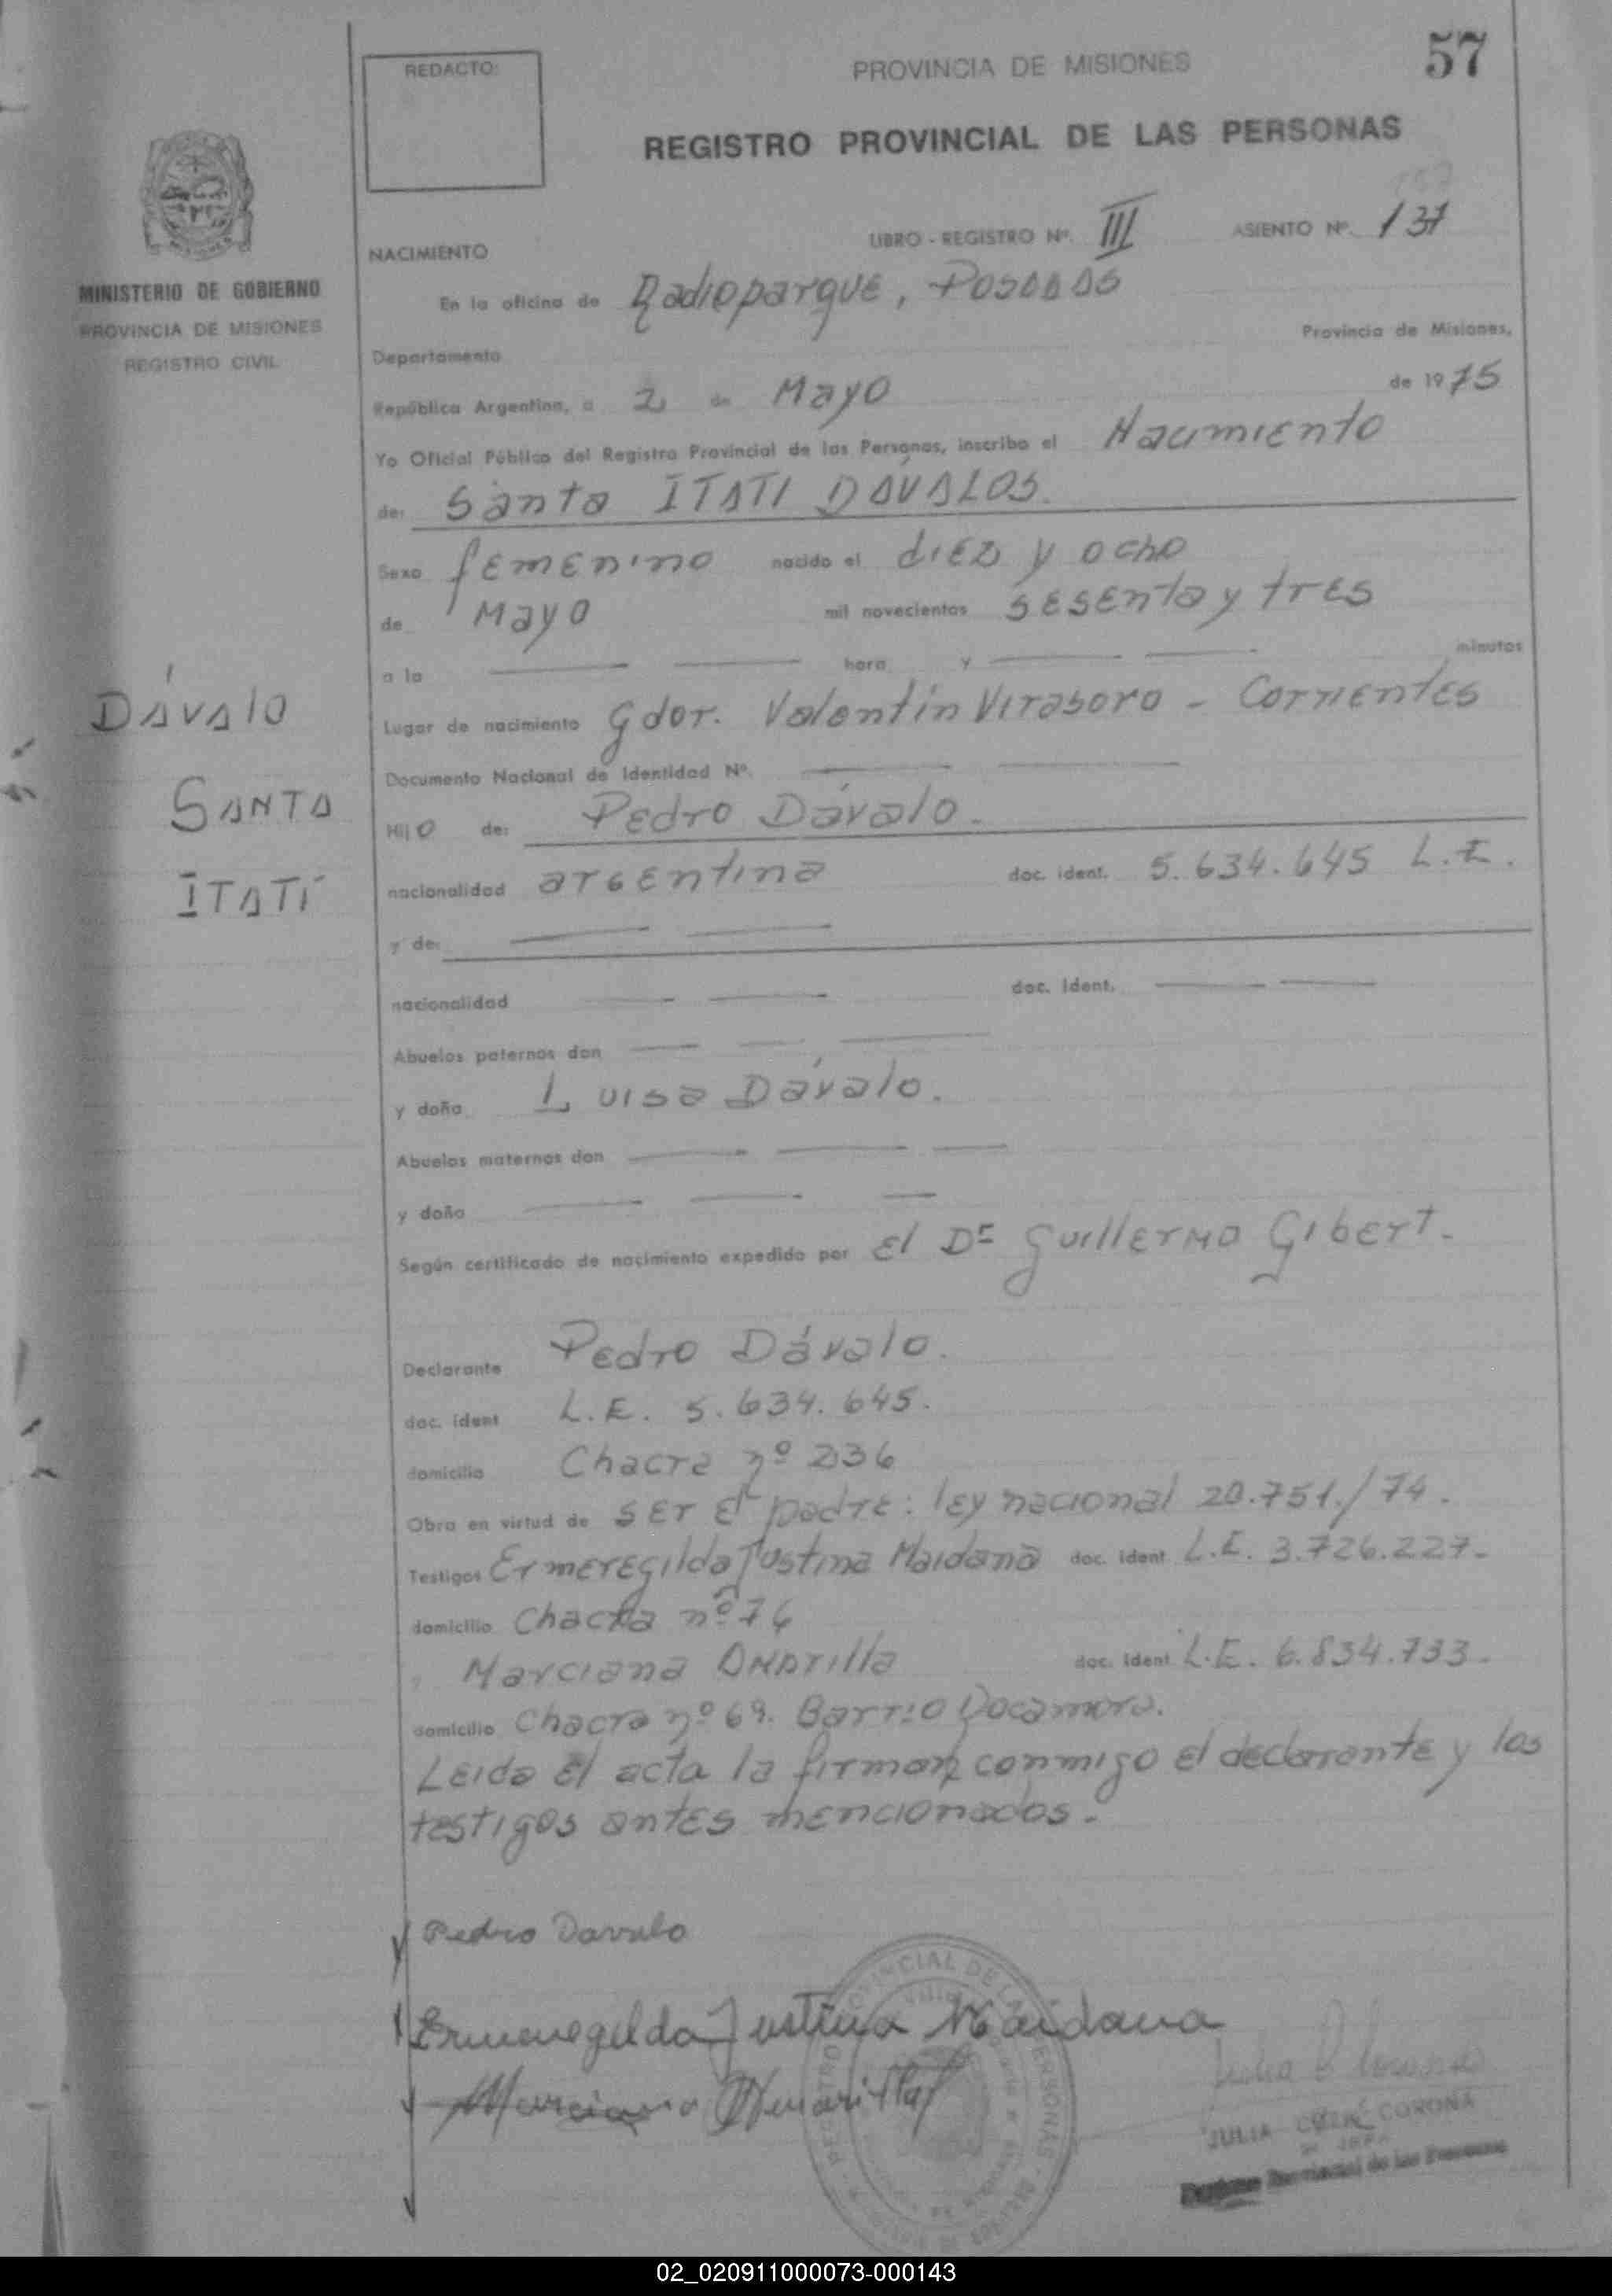 57
REDACTO:
PROVINCIA DE MISIONES
REGISTRO PROVINCIAL DE LAS PERSONAS
MINISTERIO DE GOBIERNO
PROVINCIA DE MISIONES
REGISTRO CIVIL
NACIMIENTO LIBRO - REGISTRO Nº. III ASIENTO Nº. 137
En la oficina de Radioparque, Posadas
Departamento Provincia de Misiones,
República Argentina, a 2 de Mayo de 1975
Yo Oficial Público del Registro Provincial de las Personas, inscribo el Nacimiento
de: Santa ITATI DÁVALOS.
Sexo femenino nacido el diez y ocho
de Mayo mil novecientos sesenta y tres
a la hora y minutos
DÁVALO
SANTA
ITATÍ
Lugar de nacimiento Gdor. Valentín Virasoro - Corrientes
Documento Nacional de Identidad Nº.
Hijo de: Pedro Dávalo.
nacionalidad argentina doc. ident. 5.634.645 L.E.
y de:
nacionalidad doc. ident.
Abuelos paternos don
y doña Luisa Dávalo.
Abuelos maternos don
y doña
Según certificado de nacimiento expedido por El Dr Guillermo Gibert.
Declarante Pedro Dávalo.
doc. ident L.E. 5.634.645.
domicilio Chacra nº 236
Obra en virtud de ser el padre: ley nacional 20.751./74.
Testigos Ermeregilda Justina Maidana doc. ident L.E. 3.726.227.-
domicilio Chacra nº 76
Marciana doc. ident L.E. 6.834.733.-
domicilio Chacra nº 69. Barrio
Leida el acta la firman conmigo el declarante y los
testigos antes mencionados.
Pedro Davalo
Ermenegilda Justina Maidana
JULIA CORONA
Provincial de las Personas
02_020911000073-000143